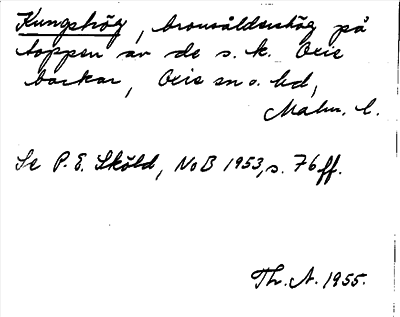 Kungshög, bronsåldershög på
toppen av de s. k. Oxie
backar, Oxie sn o. hd,
Malm. l.
Se P. E. Sköld, NoB 1953, s. 76 ff.
Th. A. 1955.